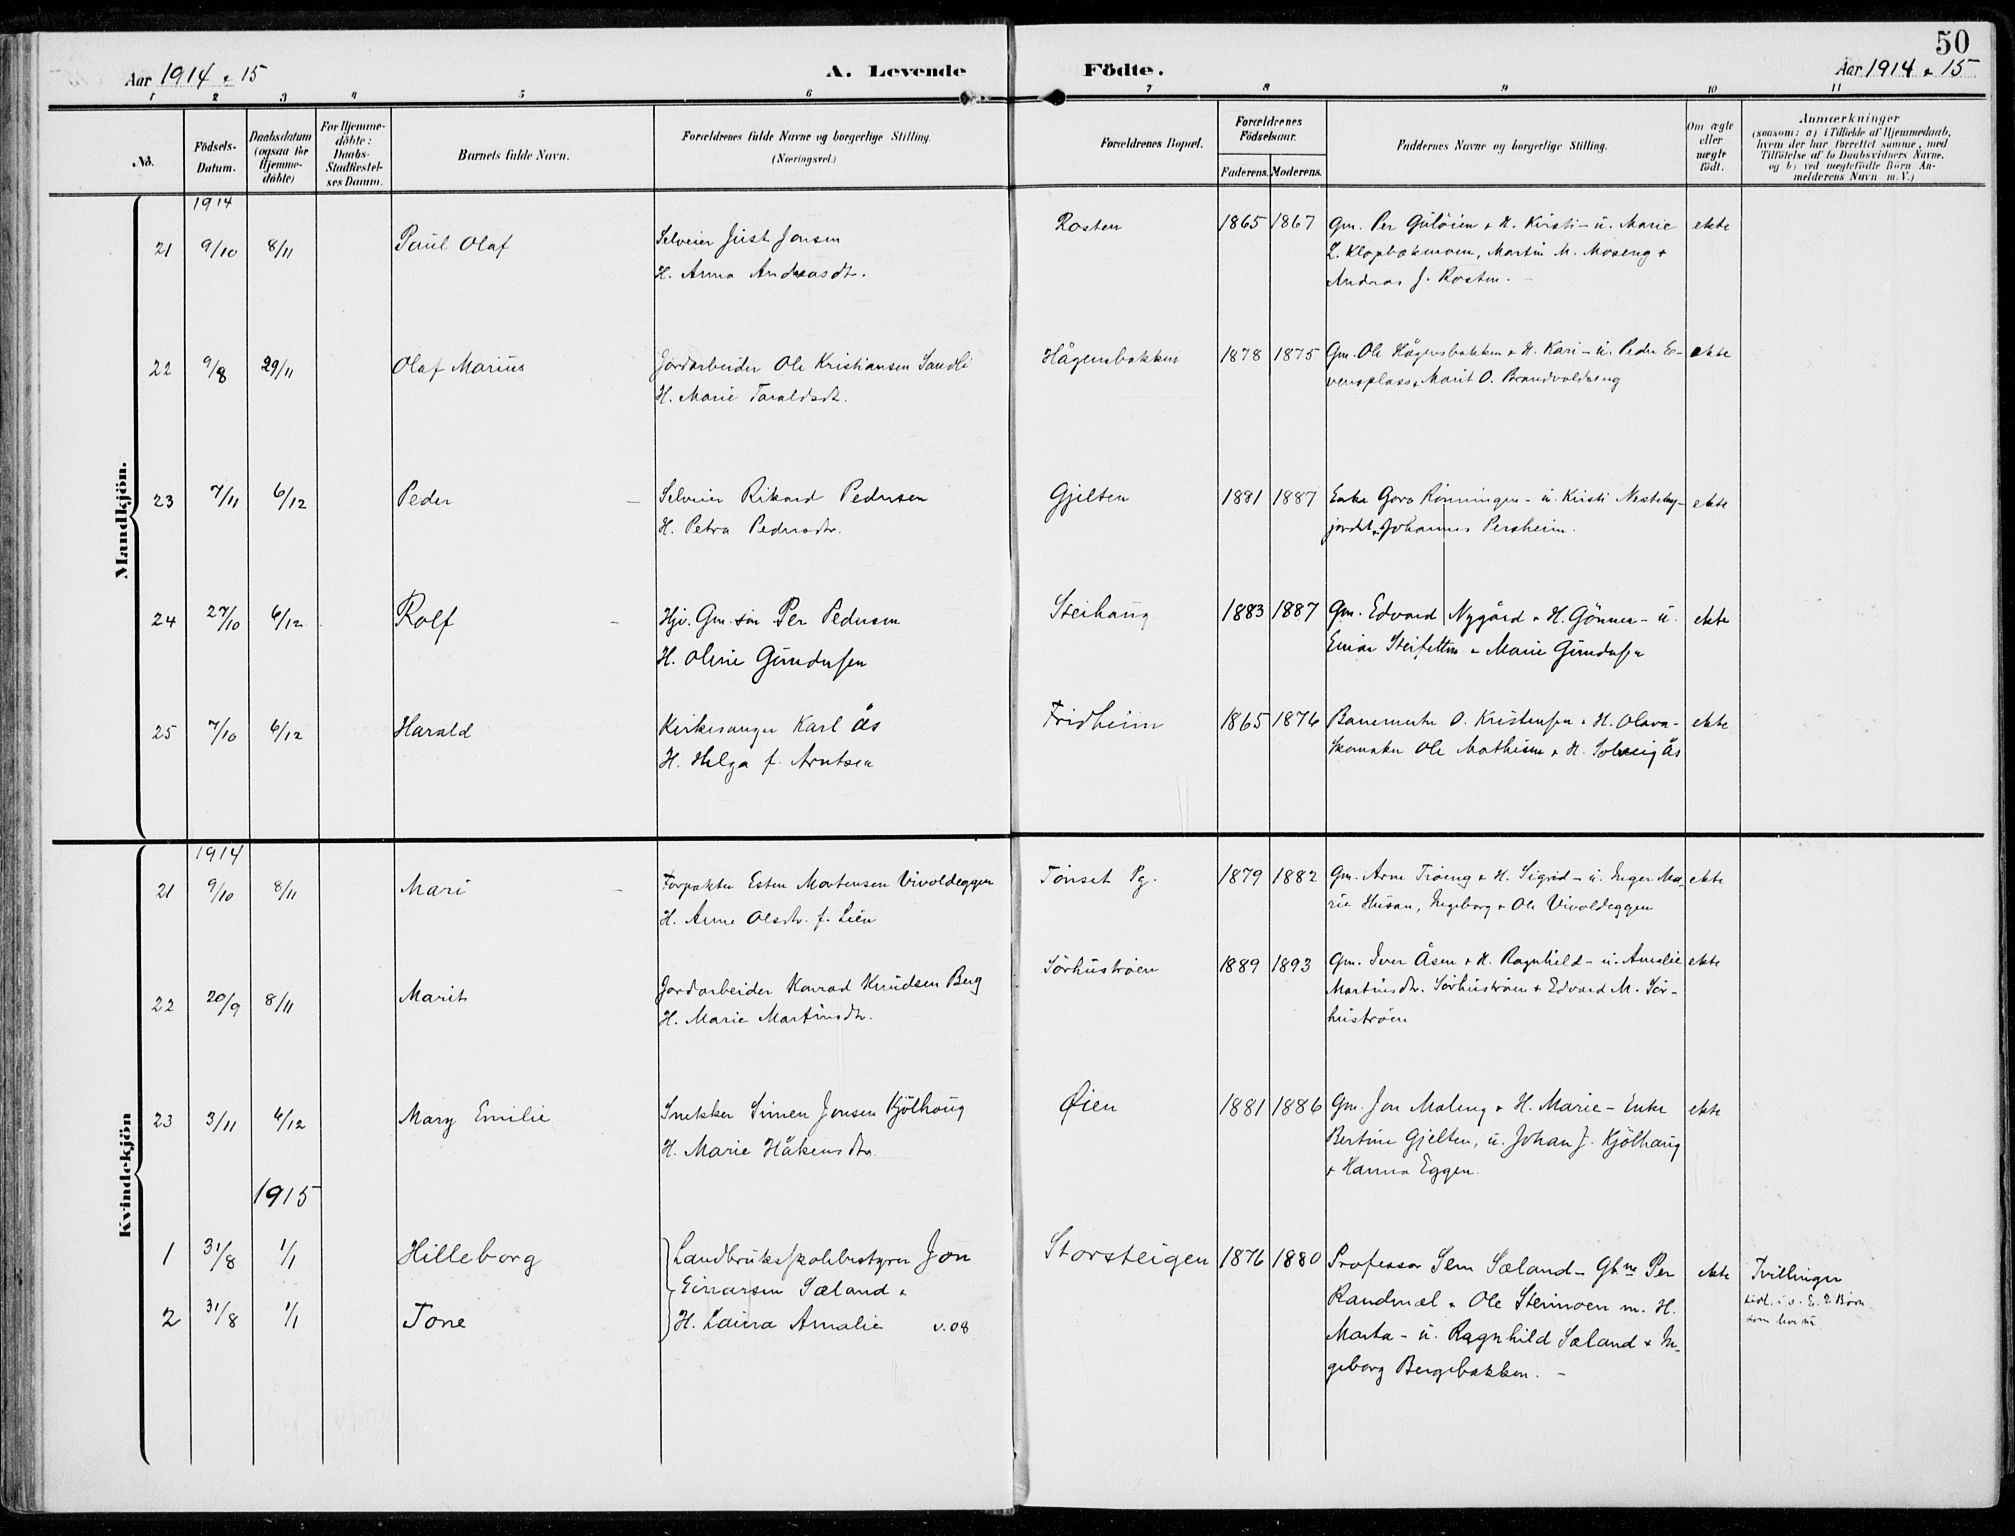 50
Aar 1914 & 15
A. Levende
Födte.
Aar 1914 & 15
1 2 3 4 5 6 7 8 9 10 11
No.
Födsels-
Datum.
Daabsdatum
(ogsaa for
Hjemme-
döbte)
For Hjemme-
döbte:
Daabs-
Stadfæstel-
ses Datum.
Barnets fulde Navn.
Forældrenes fulde Navne og borgerlige Stilling.
(Næringsvei.)
Forældrenes Bopæl.
Forældrenes
Födselsaar.
Faderens.
Moderens.
Faddernes Navne og borgerlige Stilling.
Om ægte
eller
uægte
födt.
Anmærkninger
(saasom: a) i Tilfælde af Hjemmedaab,
hvem der har forrettet samme, med
Tilföielse af to Daabsvidners Navne,
og b) ved uegtefödte Börn An-
melderens Navn m. V.)
Mandkjön.
1914
21 9/10 8/11 Paul Olaf
Selveier Just Jonsen
H. Anna Andreasdtr.
Rosten 1865 1867
Gm. Per Gulöien & H. Kirsti - u. Marie
L. Klopbakmoen, Martin M. Moseng &
Andreas J. Rosten. -
ekte
22 9/8 29/11 Olaf Marius
Jordarbeider Ole Kristiansen Sandli
H. Marie Taraldsdt.
Hågensbakken 1878 1875
Gm. Ole Hågensbakken & H. Kari - u. Peder E-
vensplass & Marit O. Brandvoldseng
ekte
23 7/11 6/12 Peder
Selveier Rikard Pedersen
H. Petra Pedersdtr.
Gjelten 1881 1887
Enke Goro Rönningen - u. Kirsti Nesteby-
jordet & Johannes Persheim.
ekte
24 27/10 6/12 Rolf
Hjv. Gm. sön Per Pedersen
H. Oline Gundersen
Steihaug 1883 1887
Gm. Edvard Nygård & H. Gönner - u.
Einar Steifetten & Marie Gundersen
ekte
25 7/10 6/12 Harald
Kirkesanger Karl Ås
H. Helga f. Arntsen
Fridheim 1865 1876
Banemester O. Kristensen & H. Olava -
Skomaker Ole Mathisen & H. Solveig Ås
ekte
Kvindekjön
1914
21 9/10 8/11 Mari
Forpakter Esten Mortensen Vivoldeggen
H. Anne Olsdtr. f. Lien
Tönset Pg. 1879 1882
Gm. Arne Tröeng & H. Sigrid - u. Inger Ma-
rie Husan, Ingeborg & Ole Vivoldeggen
ekte
22 20/9 8/11 Marit
Jordarbeider Konrad Knudsen Berg
H. Marie Martinsdtr.
Sörhuströen 1889 1893
Gm. Iver Åsen & H. Ragnhild - u. Amalie
Martinsdtr. Sörhuströen & Edvard M. Sör-
huströen
ekte
23 3/11 6/12 Mary Emilie
Snekker Simen Jonsen Kjölhaug
H. Marie Håkensdtr.
Öien 1881 1886
Gm. Jon Moleng & H. Marie - Enke
Bertine Gjelten, u. Johan J. Kjölhaug
& Hanna Eggen.
ekte
1915
1 31/8 1/1 Hilleborg
2 31/8 1/1 Tone
Landbruksskolebestyrer Jon
Einarsen Sæland &
H. Laura Amalie v. 08
Storsteigen 1876 1880
Professor Sem Sæland - Gbne Per
Randmæl & Ole Steimoen m. H.
Marta - u. Ragnhild Sæland & In-
geborg Bergebakken. -
ekte
Tvillinger